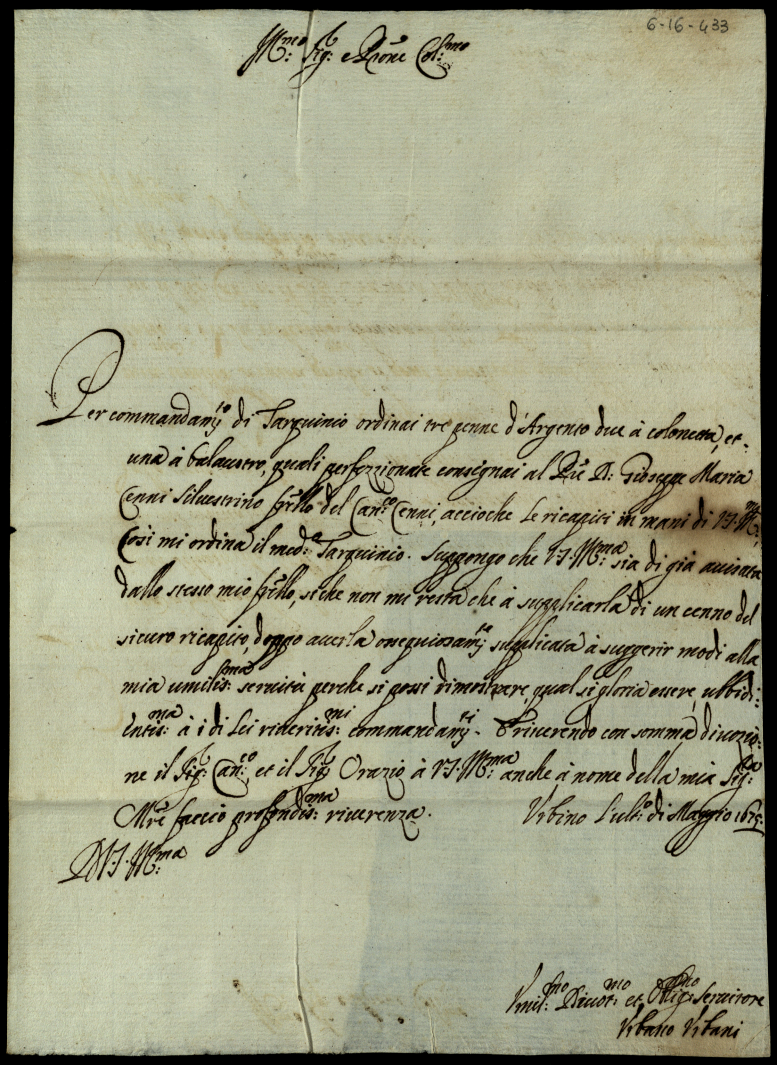 6-16-433
Ill:mo Sig:r e Prone Col:mo
Per commandam:to di Tarquinio ordinai tre penne d'Argento due à colonetta, et
una à balaustro, quali perfezionate consegnai al P̃re D: Giuseppe Maria
Cenni Silvestrino fr̃llo del Can:co Cenni, accioche le ricapiti in mani di V.S. Ill:ma,
Così mi ordina il med:o Tarquinio. Suppongo che V.S. Ill:ma sia di già avisata
dallo stesso mio fr̃llo, si che non mi resta che à supplicarla di un cenno del
sicuro ricapito, doppo averla ossequiosam:te supplicata à suggerir modi alla
mia umilis:ma servitù perche si possi dimostrare, qual si gloria essere, ubbidi-
entis:ma à i di Lei riveritis:mi commandam:ti. E riverendo con somma divozio-
ne il Sig:r Can:co, et il Sig:r Orazio à V.S. Ill:ma anche à nome della mia Sig:ra
M̃re faccio profondis:ma riverenza. Urbino l'ult:o di Maggio 1675.
D V.S. Ill:ma
Umil:mo Divot:mo et Oblig:mo Servitore
Urbano Urbani